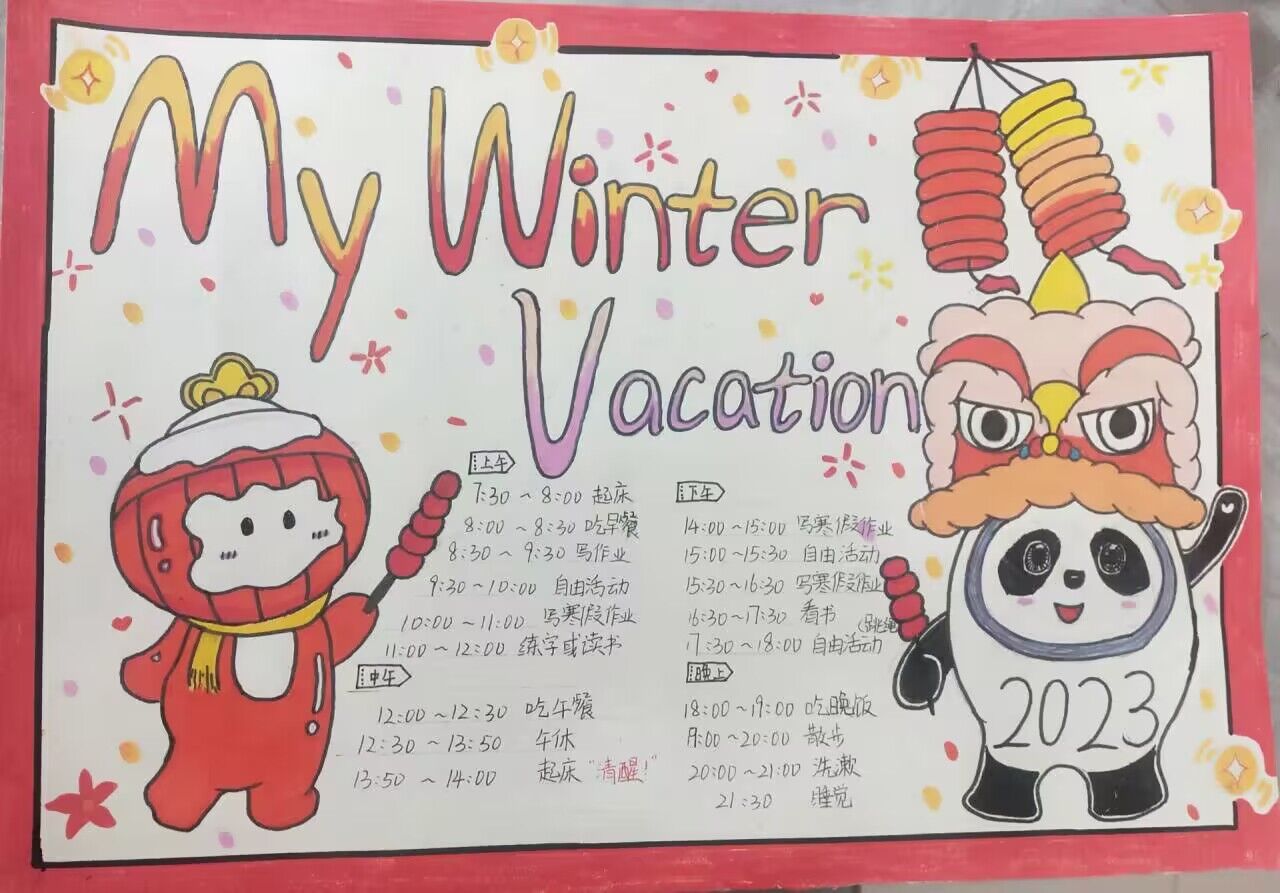 My Winter
Vacation
上午
7:30 ~ 8:00 起床
8:00 ~ 8:30 吃早餐
8:30 ~ 9:30 写作业
9:30 ~ 10:00 自由活动
10:00 ~ 11:00 写寒假作业
11:00 ~ 12:00 练字或读书
中午
12:00 ~ 12:30 吃午餐
12:30 ~ 13:50 午休
13:50 ~ 14:00 起床"清醒!"
下午
14:00 ~ 15:00 写寒假作业
15:00 ~ 15:30 自由活动
15:30 ~ 16:30 写寒假作业
16:30 ~ 17:30 看书
(跳绳
17:30 ~ 18:00 自由活动
晚上
18:00 ~ 19:00 吃晚饭
19:00 ~ 20:00 散步
20:00 ~ 21:00 洗漱
21:30 睡觉
2023